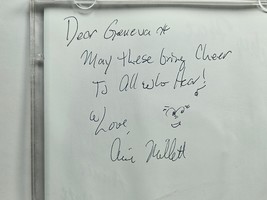 Dear Geneva
May these bring Cheer
To All who Hear!
Love,